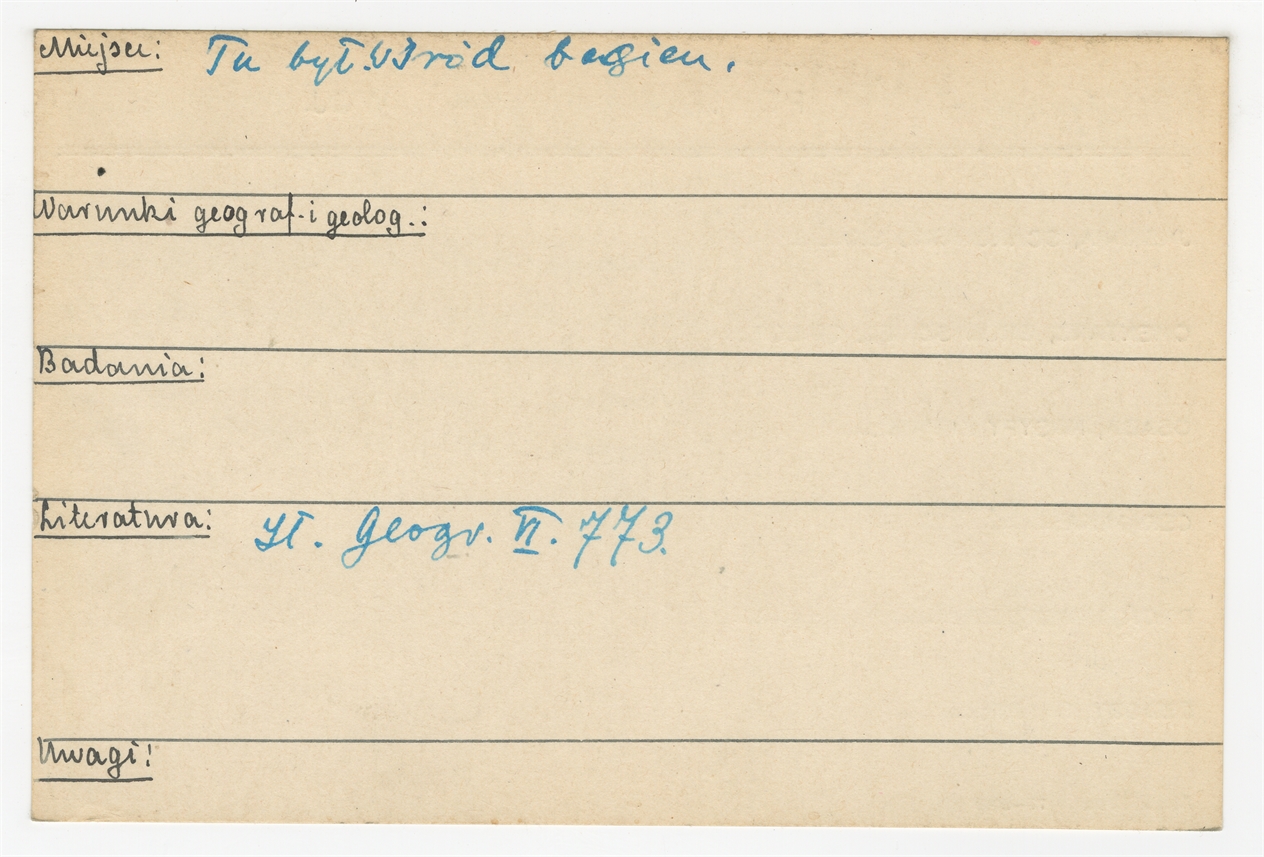 Miejsce: Tu był. wśród bagien.
Warunki geograf. i geolog.:
Badania:
Literatura: Sł. Geogr. VI. 773.
Uwagi: